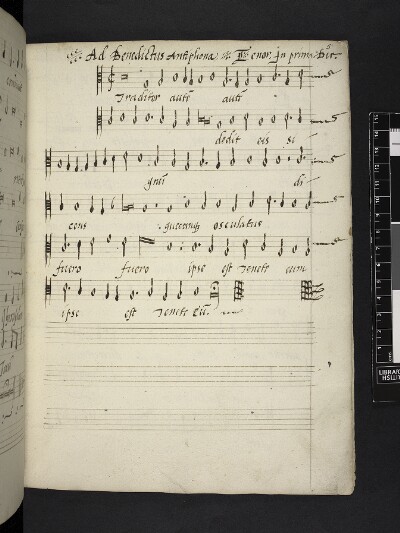 Ad Benedictus Antiphona Tenor, In prima
Traditor autē autē
dedit eis si
gnū di
cens quecunq osculatus
fuero fuero ipse est Tenete eum
ipse est Tenete eū.